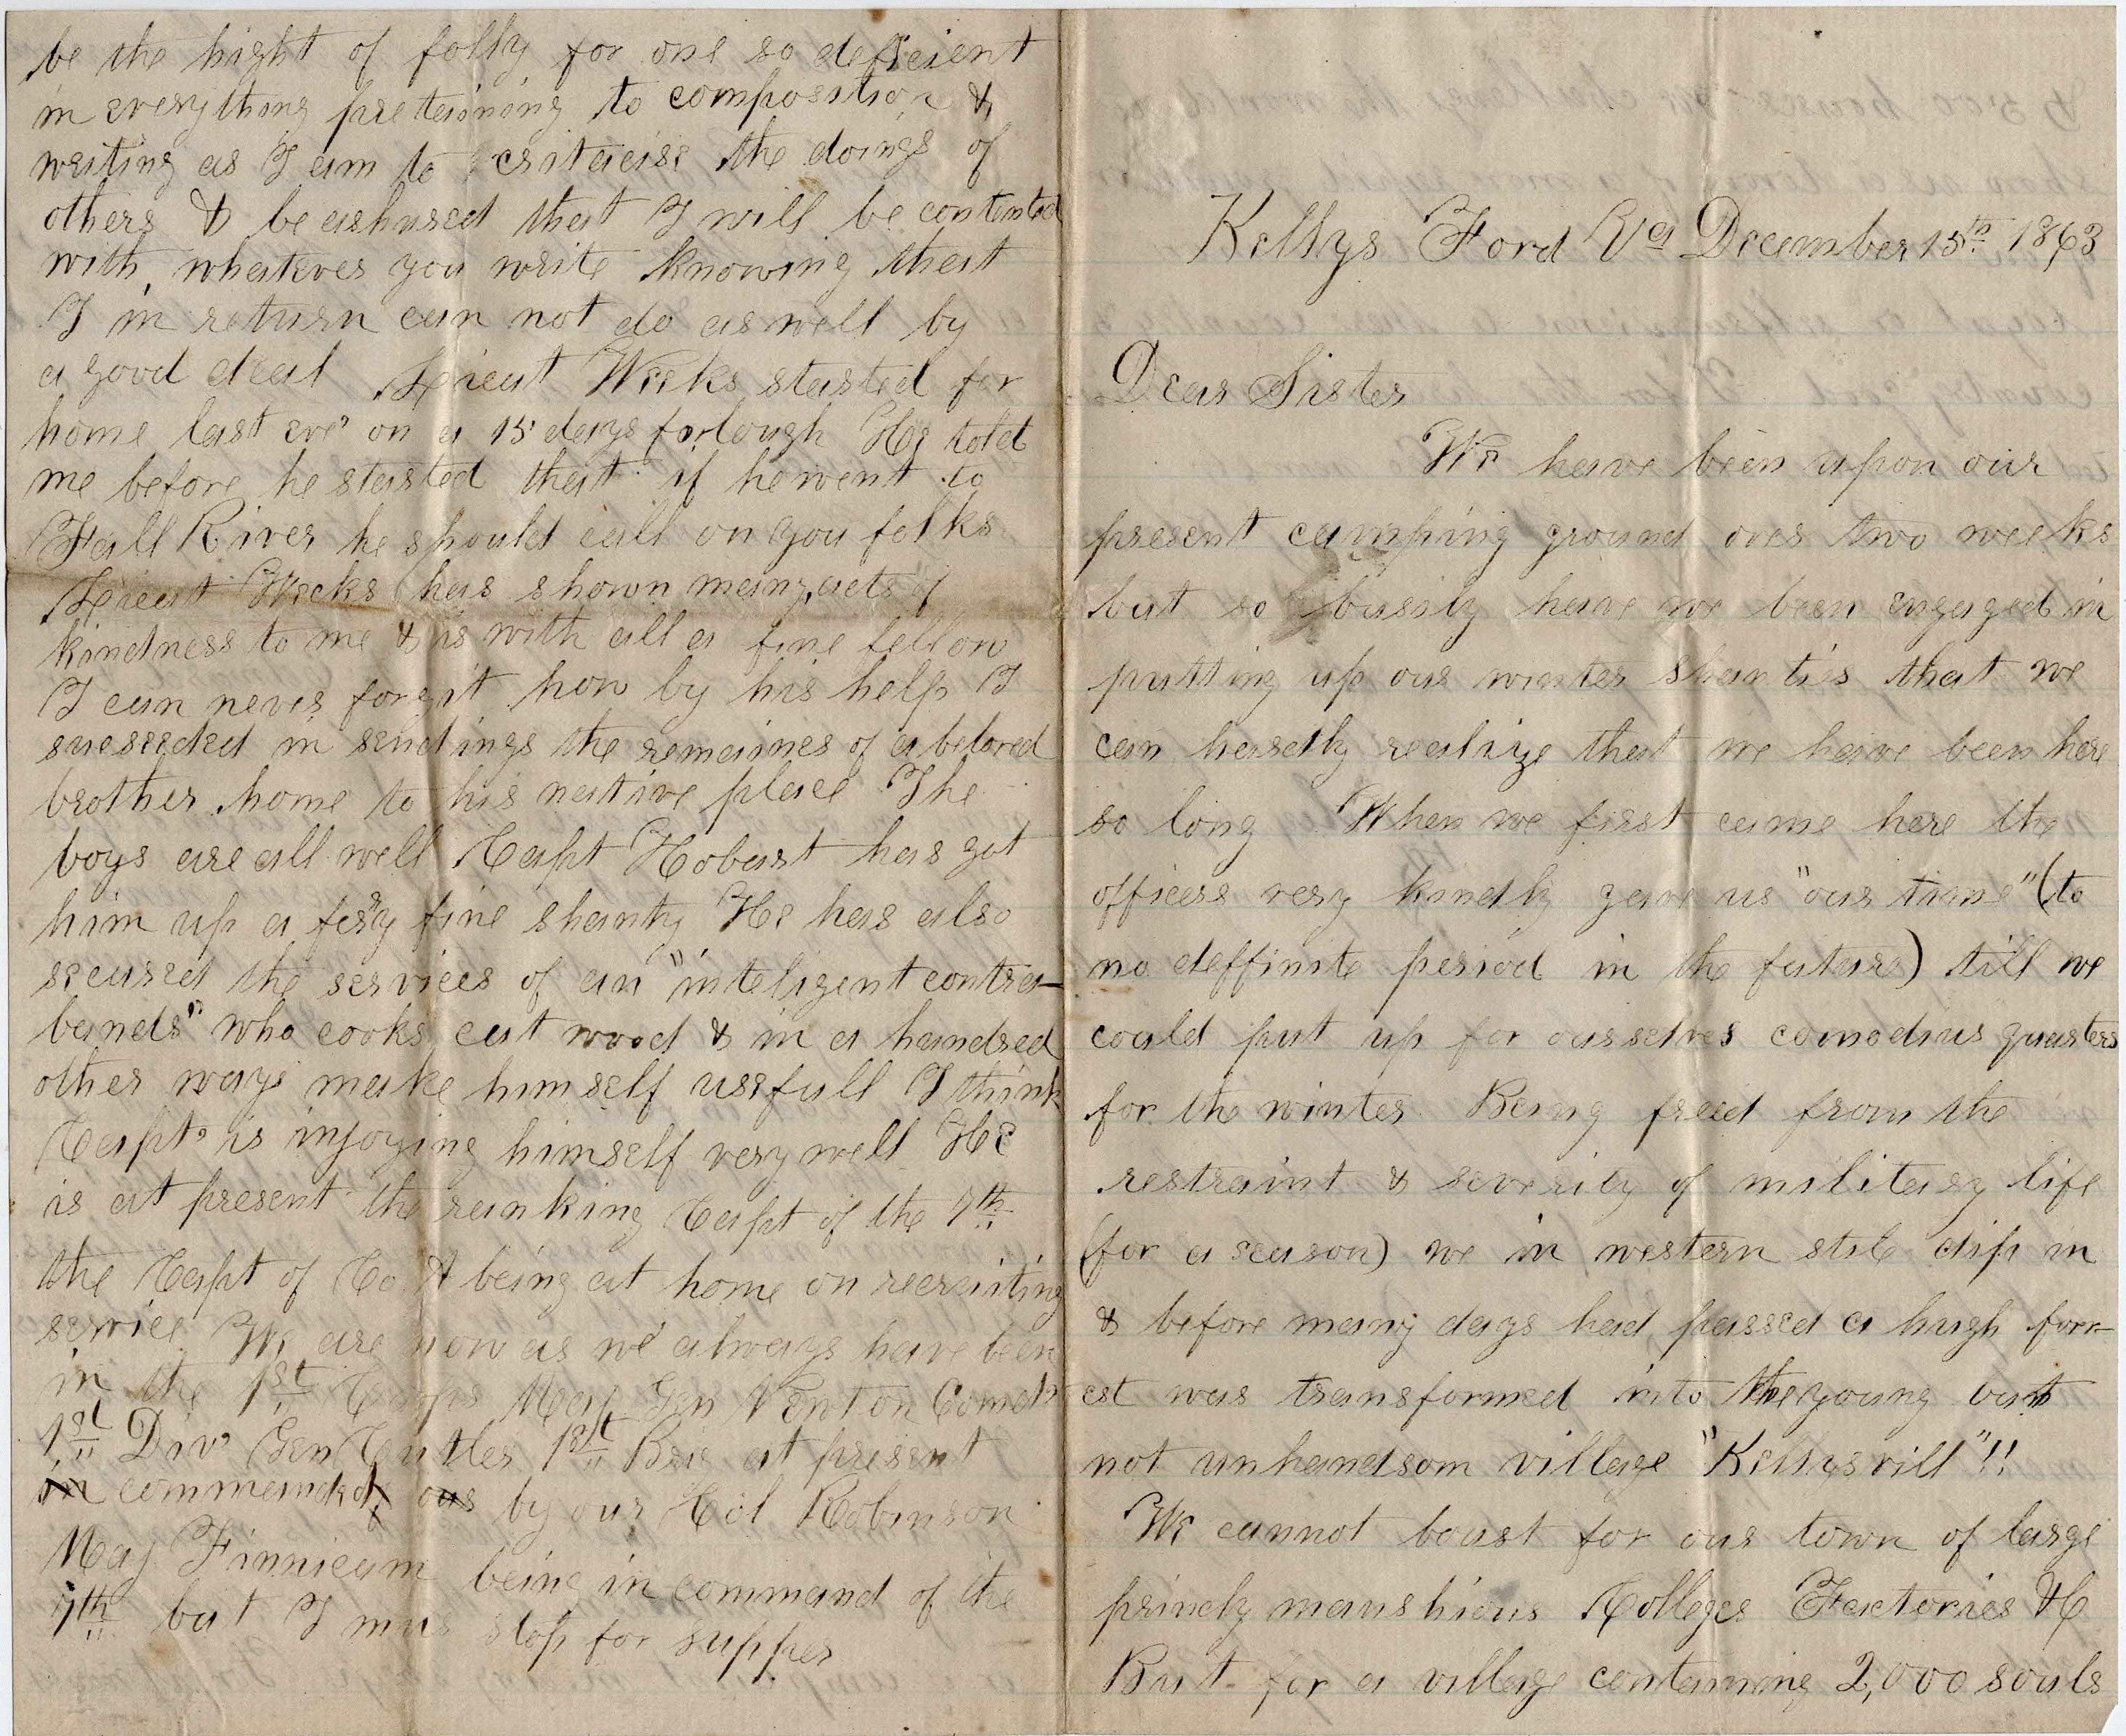 Kellys Ford Va December 15th 1863
Dear Sister
We have been upon our
present camping ground over two weeks
but so busily have we been engaged in
putting up our winter shanties that we
can hardly realize that we have been here
so long When we first came here the
officers very kindly gave us "our time" (to
no deffinite period in the future) till we
could put up for ourselves comodius quarters
for the winter. Being freed from the
restraint & severity of military life
(for a season) we in western stile dip in
& before many days had passed a hugh forr-
est was transformed into the young but
not unhandsom village "Kellysvill"!!
We cannot boast for our town of large
princly manshions Colleges Factories &c
But for a village containing 2,000 souls
be the hight of folly for one so deficient
in everything pretaining to composition &
writing as I am to critacise the doings of
others & be ashured that I will be contented
with whatever you write knowing that
I in return can not do as well by
a good deal Lieut Weeks started for
home last eve on a 15 days forlough He told
me before he started that if he went to
Fall River he should call on you folks
Lieut Weeks has shown many acts of
kindness to me & is with all a fine fellow
I can never forgit how by his help I
suceeded in sendings the remaines of a beloved
brother home to his native place The
boys are all well Capt Hobart has got
him up a fine shanty He has also
secured the services of an "inteligent contra-
bands" who cooks cut wood & in a hundred
other ways make himself usefull I think
Capt is injoying himself very well He
is at present the ranking Capt of the 7th
the Capt of Co A being at home on recruiting
service We are now as we always have been
in the 1st Corps Maj Gen Newton Comd
1st Div Gen Cutler 1st Brig at present
in commanded our by our Col Robinson
Maj Finnicam being in command of the
7th but I mus stop for supper